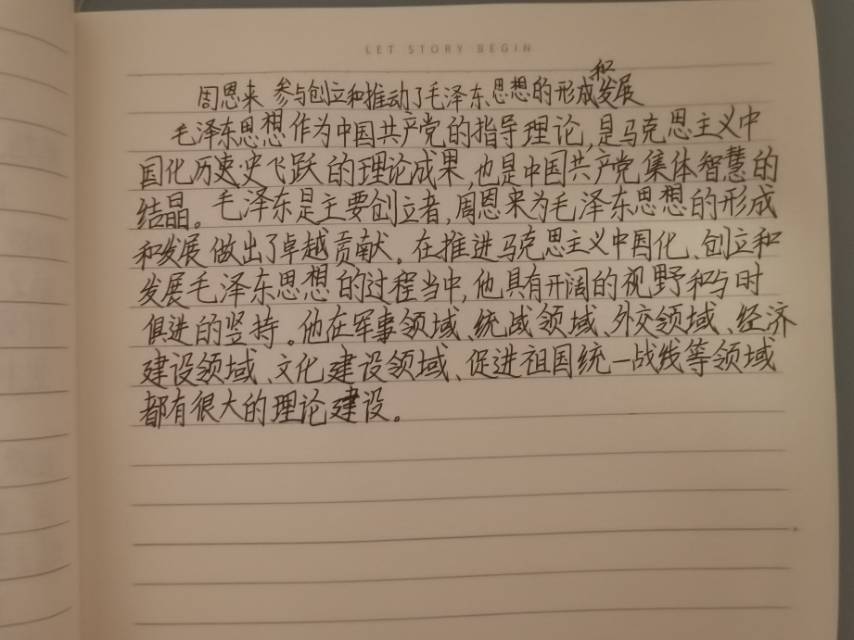 LET STORY BEGIN
周恩来 参与创立和推动了毛泽东思想的形成和发展
毛泽东思想作为中国共产党的指导理论,是马克思主义中
国化历史史飞跃的理论成果,也是中国共产党集体智慧的
结晶。毛泽东是主要创立者,周恩来为毛泽东思想的形成
和发展做出了卓越贡献。在推进马克思主义中国化、创立和
发展毛泽东思想的过程当中,他具有开阔的视野和与时
俱进的坚持。他在军事领域、统战领域、外交领域、经济
建设领域、文化建设领域、促进祖国统一战线等领域
都有很大的理论建设。